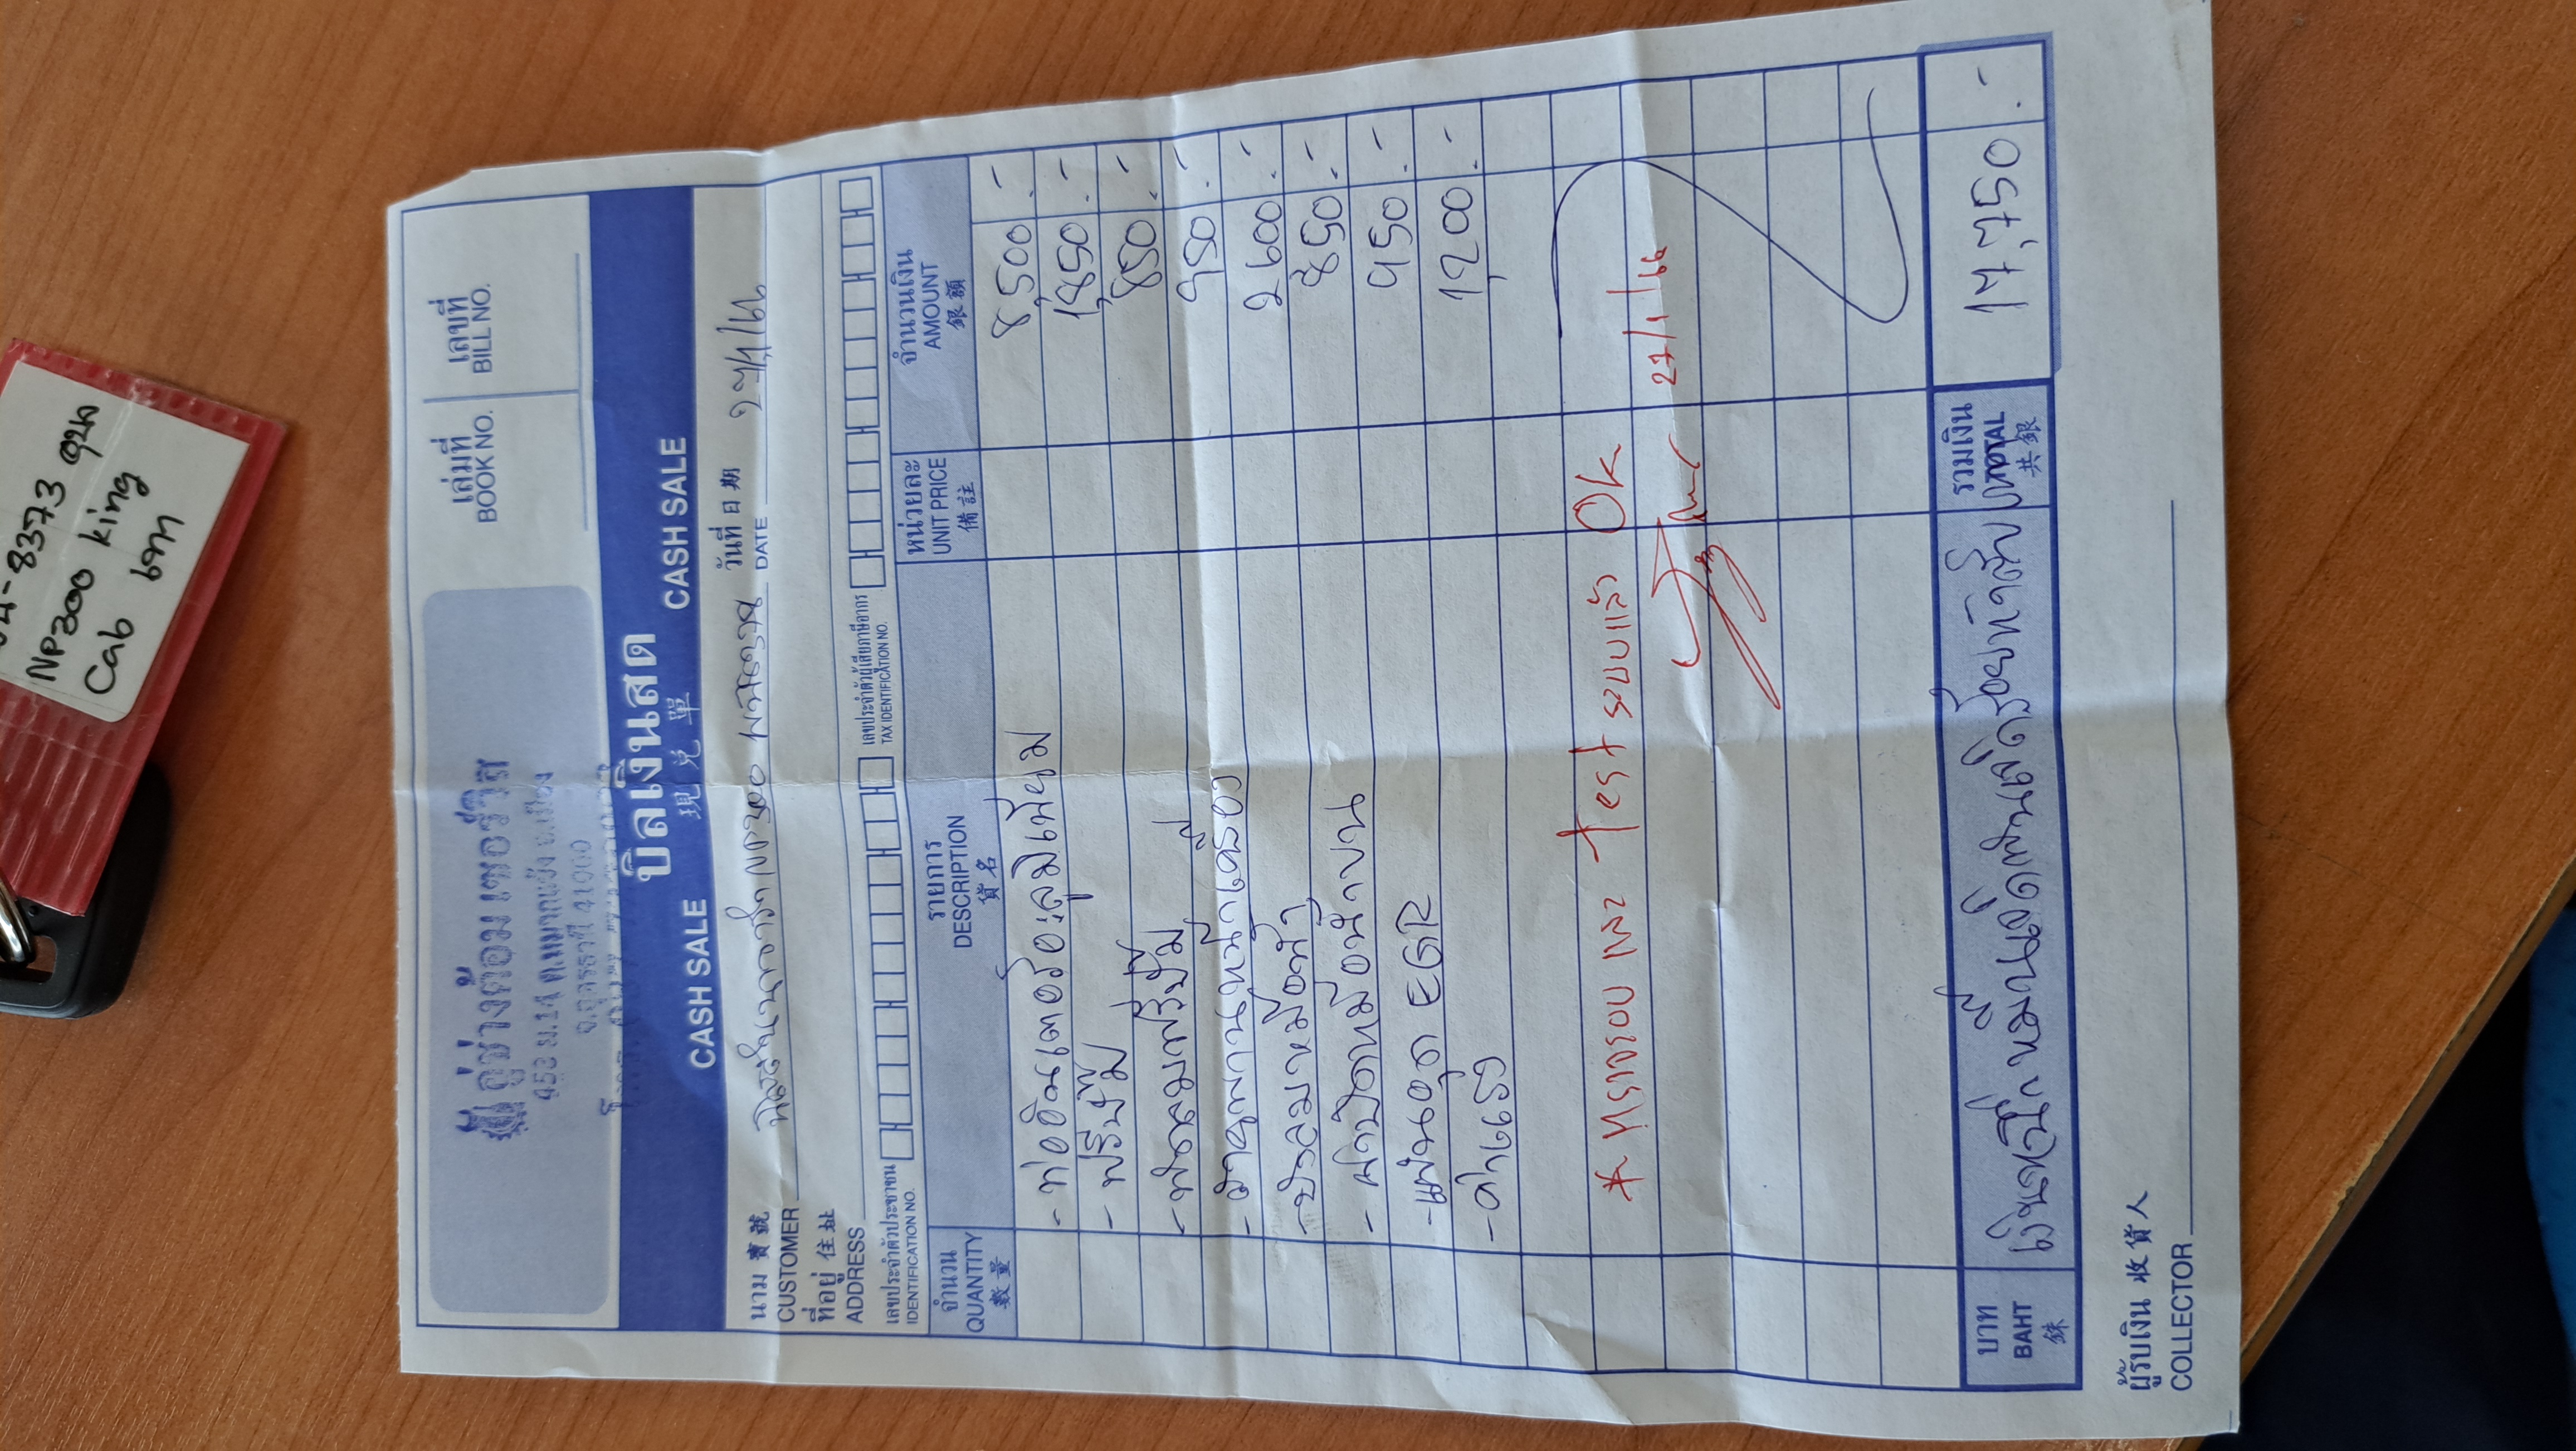 -8373 อุบล
NP300 king
Cab เทา
เล่มที่
BOOK NO.
เลขที่
BILL NO.
อู่ช่างก้อม เซอร์วิส
453 ม.14 ต.หมากแข้ง อ.เมือง
จ.อุดรธานี 41000
บิลเงินสด
CASH SALE 現兌單 CASH SALE
นาม 寶號
CUSTOMER
NP300
วันที่ 日期
DATE
27/1/66
ที่อยู่ 住址
ADDRESS
เลขประจำตัวประชาชน
IDENTIFICATION NO.
เลขประจำตัวผู้เสียภาษีอากร
TAX IDENTIFICATION NO.
จำนวน
QUANTITY
數量
รายการ
DESCRIPTION
貨名
หน่วยละ
UNIT PRICE
備註
จำนวนเงิน
AMOUNT
銀額
- ท่ออินเตอร์อะลูมิเนียม 8,500 .-
- ฟรีปั๊ม 1,850 .-
- พัดลมฟรีปั๊ม 850 .-
- สายพานหน้าเครื่อง 950 .-
- ปะเก็นหม้อน้ำ 2600 .-
- ฝาปิดหม้อน้ำบน 850 .-
- แผ่นอุด EGR 950 .-
- ค่าแรง 1,200 .-
* ตรวจรอบ และ Test ระบบแล้ว Ok
27/1/66
บาท
BAHT
銖
เงินหนึ่งหมื่นเจ็ดพันเจ็ดร้อยห้าสิบบาท
รวมเงิน
TOTAL
共銀
17,750 .-
ผู้รับเงิน 收貨人
COLLECTOR